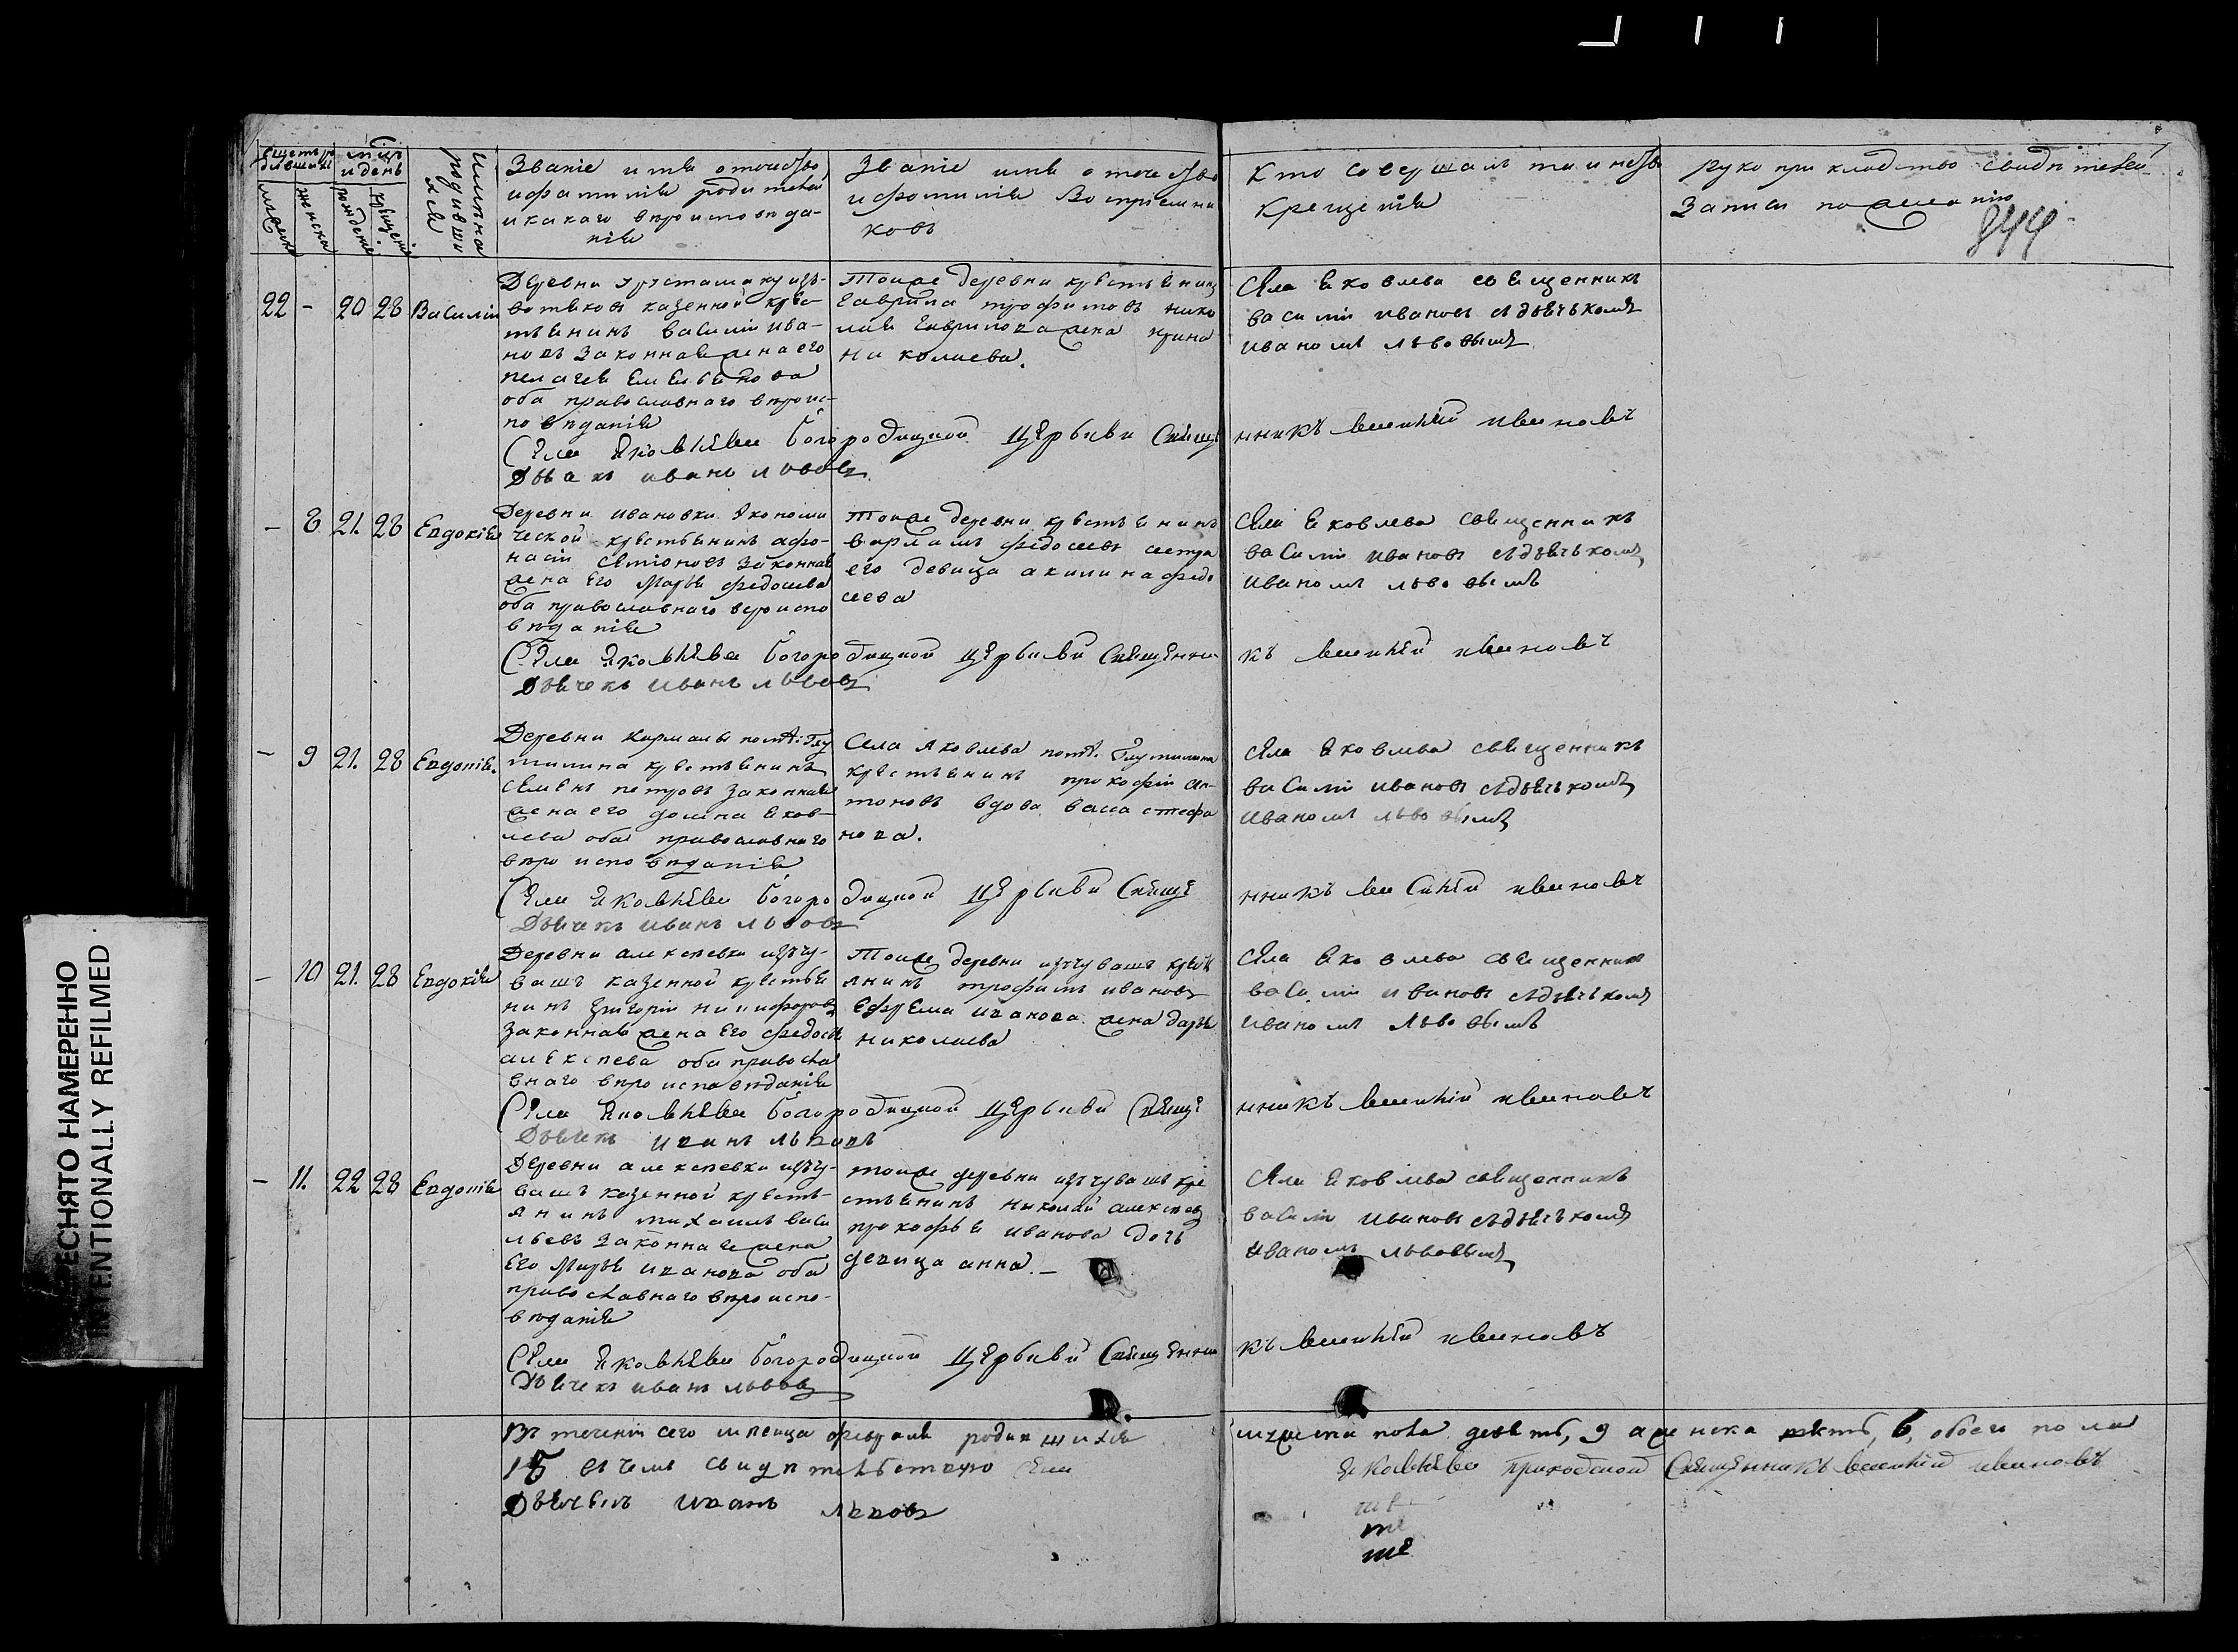 щетъ родившихъ
мужеска
женска
мцъ и день
рожденiе
крещенiе
имена родившихся
Званiе имя отечество
и фамилiя родителей
и какаго вероисповеда-
нiя
Званiе имя отечество
и фамилiя Воспрiемни
ковъ
Кто совершалъ таинство
крещенiя
Рукоприкладство свидетелей
Записи по желанiю
844
22 - 20 28 Василiй
Деревни
вотяковъ казенной кре-
стьянинъ василiй ива-
новъ законная жена его
пелагея Емельянова
оба православнаго верои-
споведанiя
Тойже деревни крестьянинъ
гаврила трофимовъ нико
лая гаврилова жена ирина
николаева.
села яковлева священникъ
василiй ивановъ съ дьячькомъ
иваномъ львовымъ
Села Яковлева богородицкой церькви Священникъ василiй ивановъ
Дьячекъ иванъ львовъ
- 8 21. 28 Евдокiя
Деревни ивановки Экономи
ческой крестьянинъ афо-
насiй семионовъ законная
жена его марья федосеева
оба православнаго вероиспо
веданiя
Тойже деревни крестьянинъ
варламъ федосеевъ сестра
его девица акилина федо
сеева
села яковлева священникъ
василiй ивановъ съ дьячькомъ
иваномъ львовымъ
Села Яковлева богородицкой церькви Священникъ василiй ивановъ
Дьячекъ иванъ львовъ
- 9 21. 28 Евдокiя.
Деревни кармалы помъ: Глу
тилина крестьянинъ
семенъ петровъ законная
жена его домна яков-
лева оба православнаго
вероисповеданiя
Села яковлева помъ. Глутилина
крестьянинъ прокофiй ан-
тоновъ вдова васа стефа
нова.
села яковлева священникъ
василiй ивановъ съ дьячькомъ
иваномъ львовымъ
Села Яковлева богородицкой церькви Священникъ василiй ивановъ
Дьячекъ иванъ львовъ
- 10 21. 28 Евдокiя
Деревни алексеевки изъ чу-
вашъ казенной крестья
нинъ григорiй никифоровъ
законная жена его федосья
алексеева оба правосла
внаго вероисповеданiя
Тойже деревни изъ чувашъ кресть
янинъ трофимъ ивановъ
Ефрема иванова жена дарья
николаева
села яковлева священникъ
василiй ивановъ съ дьячькомъ
иваномъ львовымъ
Села Яковлева богородицкой церькви Священникъ василiй ивановъ
Дьячекъ иванъ львовъ
- 11. 22 28 Евдокiя
Деревни алексеевки изъ чу-
вашъ казенной кресть-
янинъ михаилъ васи
льевъ законная жена
его марья иванова оба
православнаго вероиспо-
веданiя
тойже деревни изъ чувашъ кре
стьянинъ николай алексеевъ
прокофья иванова дочь
девица анна.-
села яковлева священникъ
василiй ивановъ съ дьячькомъ
иваномъ львовымъ
Села Яковлева богородицкой церькви Священникъ василiй ивановъ
Дьячекъ иванъ львовъ
Въ теченiи сего месеца февраля родившихся мужеска пола девять, 9 а женска шесть, 6, обоего пола
15 въ чемъ свидетельствую села яковлева приходской Священникъ василiй ивановъ
Дьячекъ иванъ львовъ
ше
те
ше
ПЕРЕСНЯТО НАМЕРЕННО
INTENTIONALLY REFILMED